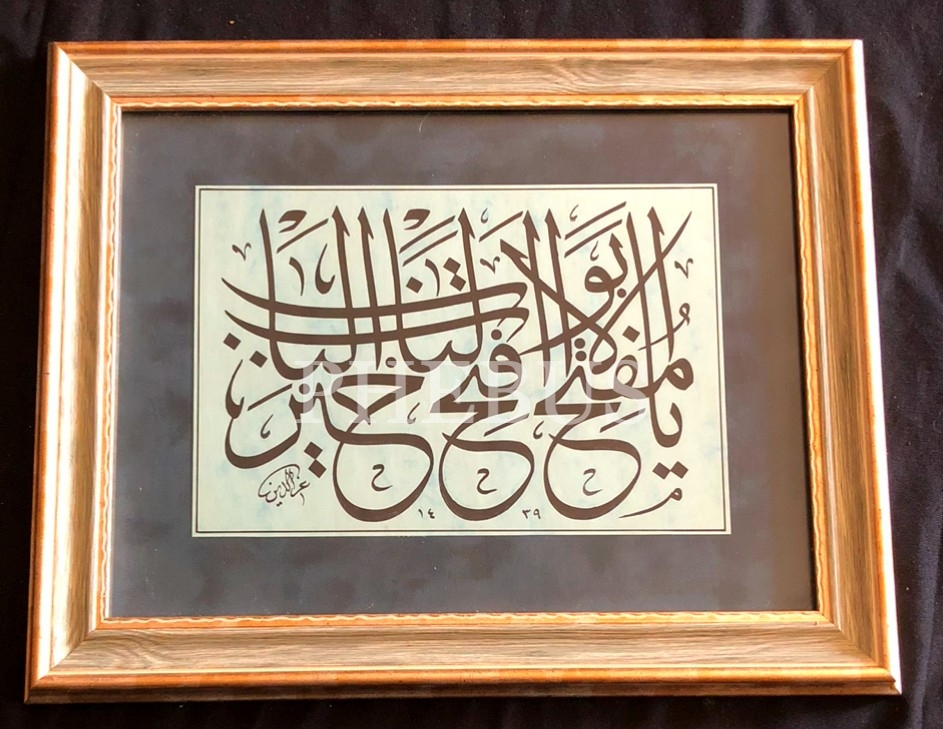 يا مفتح الابواب افتح لنا خير الباب
عز الدين
١٤ ٣٩
PHEBUS